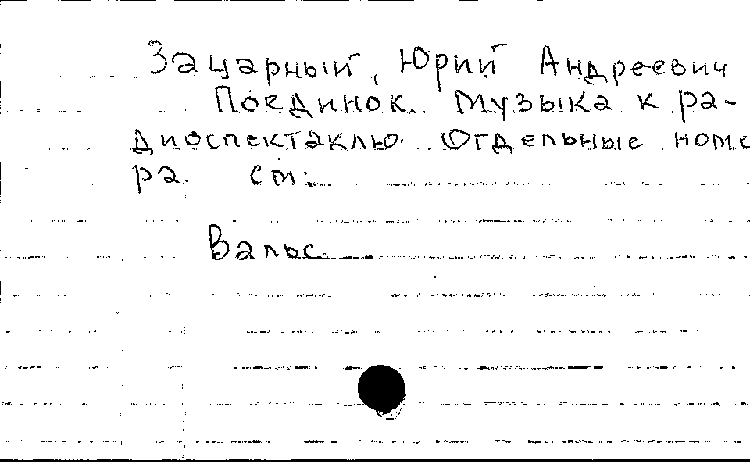 Зацарный, Юрий Андреевич
Поединок. Музыка к ра-
диоспектаклю. Отдельные номе
ра. См:
Вальс.